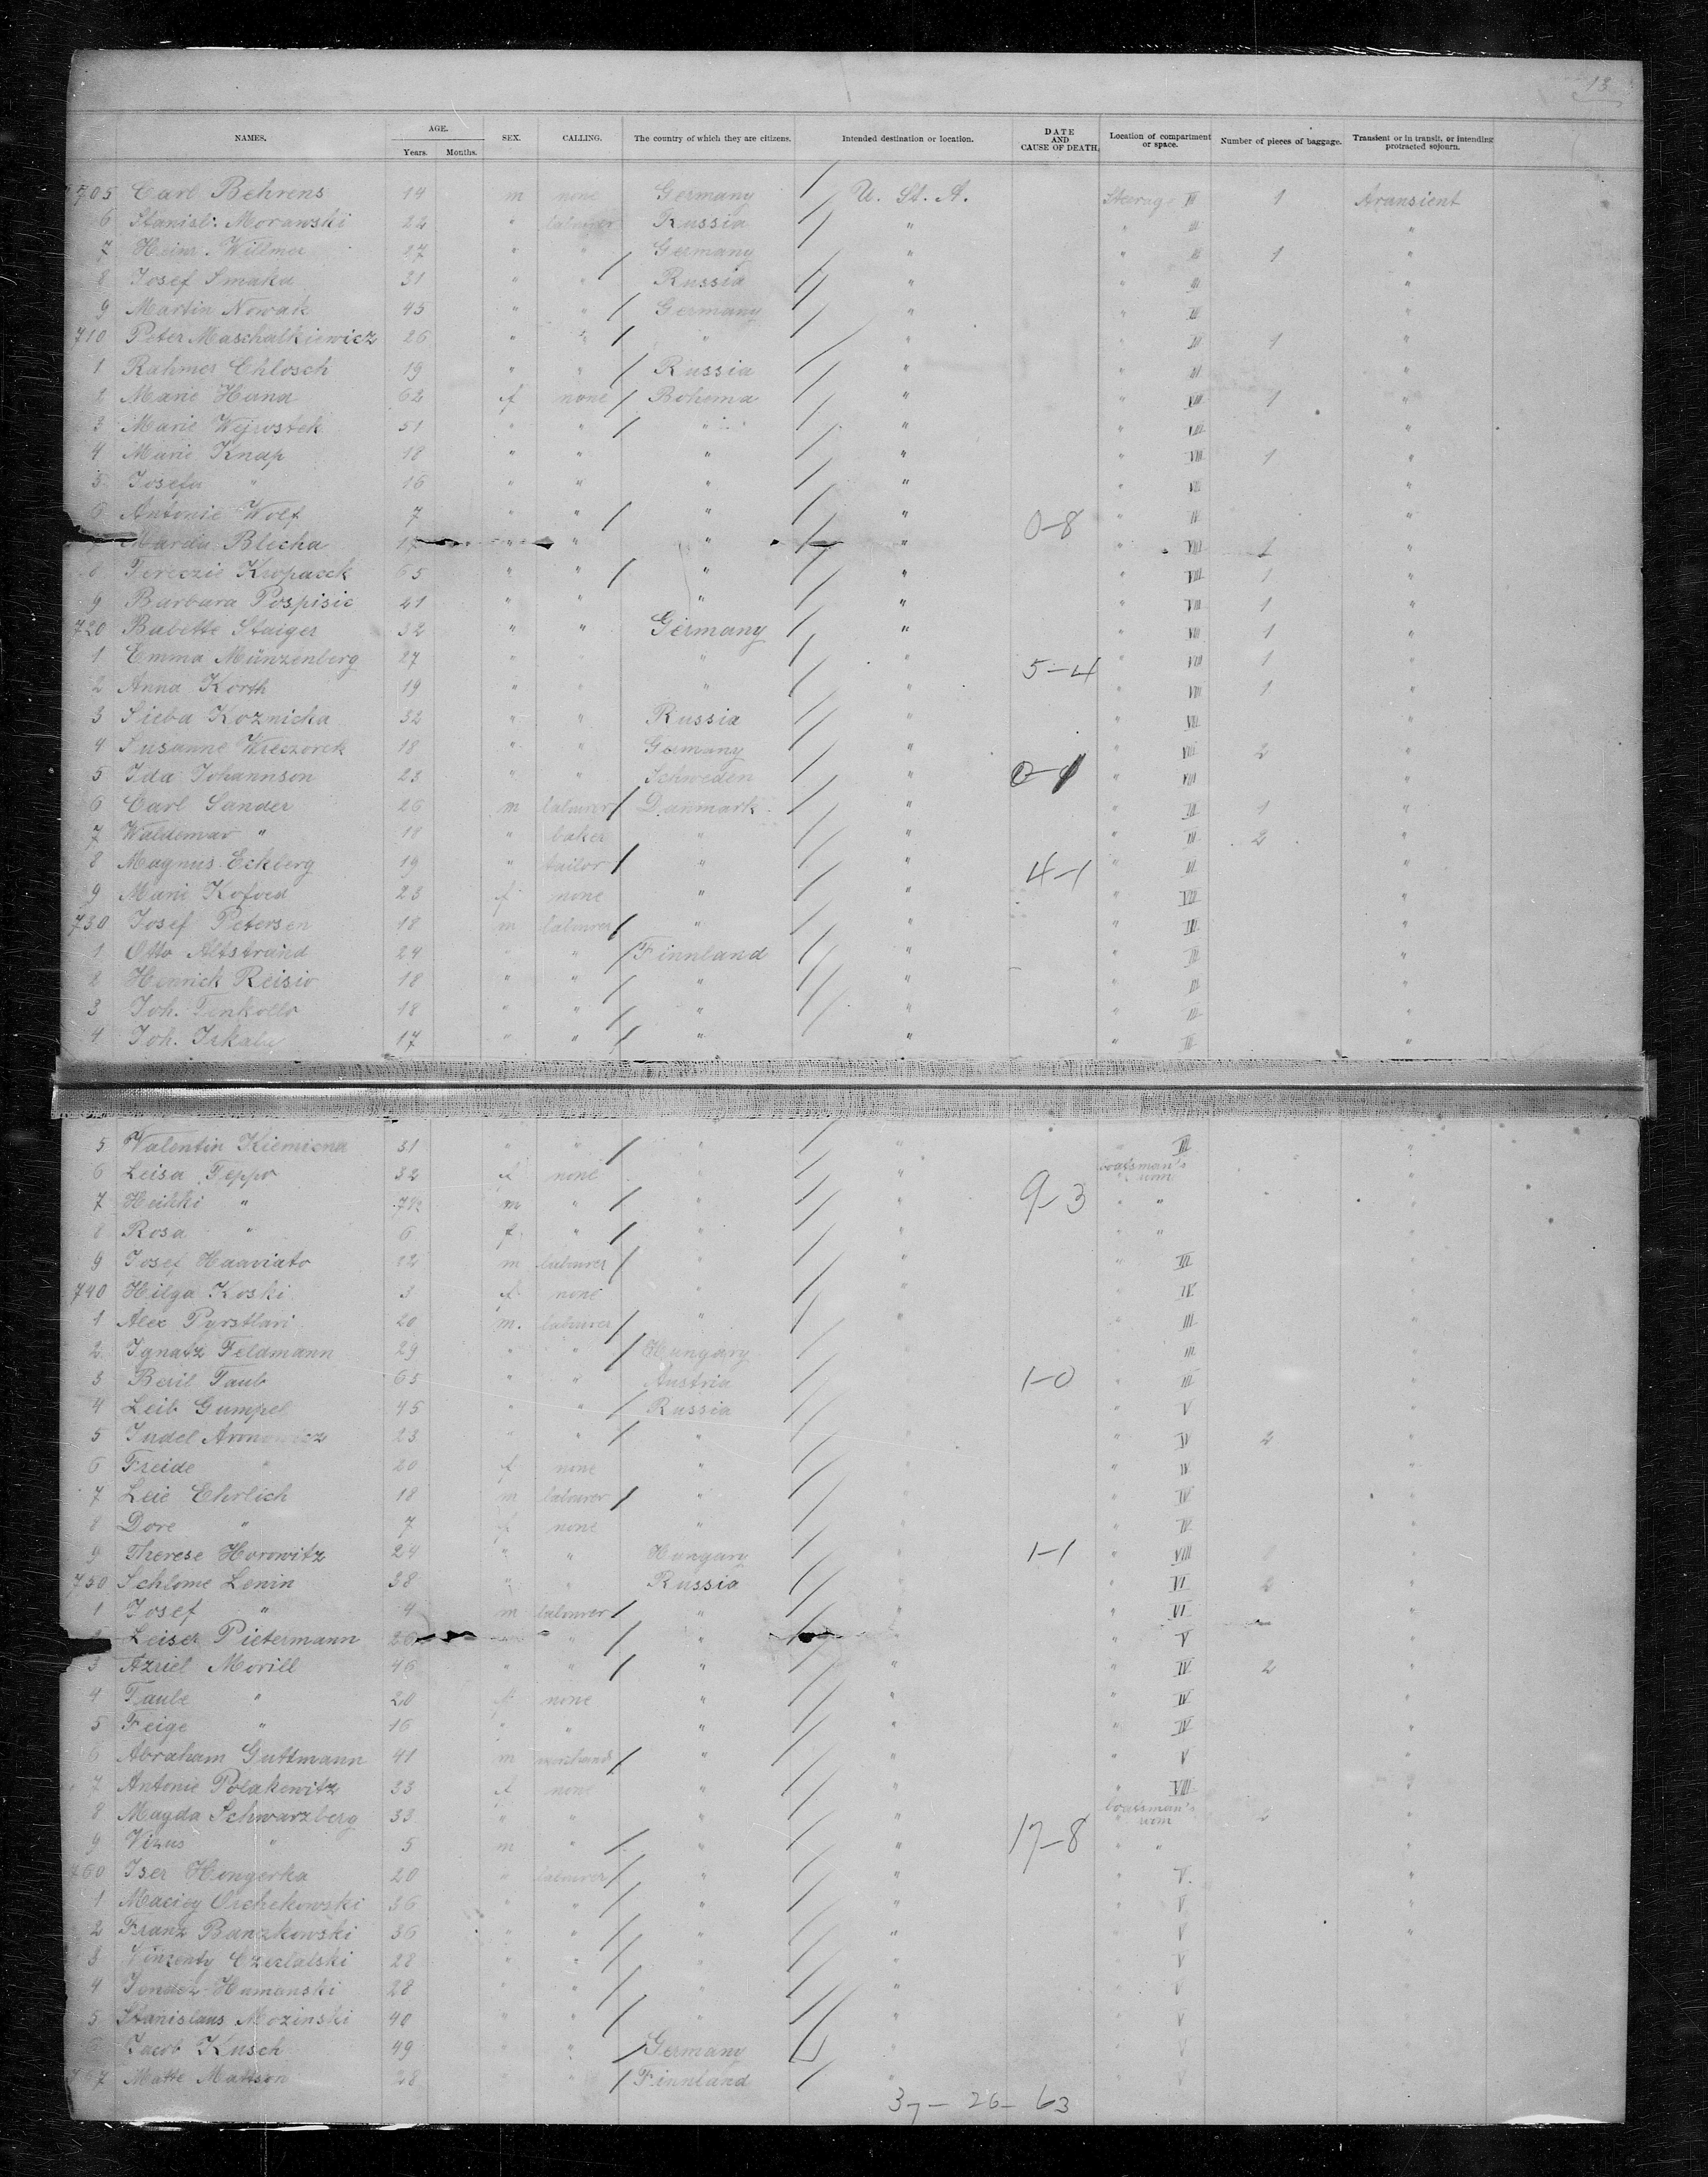 13
NAMES. AGE. Years. Months. SEX. CALLING. The country of which they are citizens. Intended destination or location. DATE AND CAUSE OF DEATH. Location of compartment or space. Number of pieces of baggage. Transient or in transit, or intending protracted sojourn.
705 Carl Behrens 14 m none Germany U. St. A. Steerage III 1 transient
6 Stanisl. Morawski 22 " labourer Russia " " III "
7 Heinr. Willmer 27 " " Germany " " III 1 "
8 Josef Smaka 31 " " Russia " " III "
9 Martin Nowak 45 " " Germany " " III "
710 Peter Maschalkiewicz 26 " " " " " III 1 "
1 Rahmer Chlosch 19 " " Russia " " "
2 Marie Hana 62 f none Bohema " " VIII 1 "
3 Marie 51 " " " " " VIII "
4 Marie Knap 18 " " " " " VIII 1 "
5 Josefa " 16 " " " " " VIII "
6 Antonie Wolf 7 " " " " 0-8 " "
7 Maria Blecha 17 " " " " " VIII 1 "
8 Kropacek 65 " " " " " VIII 1 "
9 Barbara Pospisic 21 " " " " " VIII 1 "
720 Babette Staiger 32 " " Germany " " VIII 1 "
1 Emma Münzenberg 27 " " " " 5-4 " VIII 1 "
2 Anna Korth 19 " " " " " VIII 1 "
3 Sieba Koznicka 32 " " Russia " " VII "
4 Susanne Wieczorek 18 " " Germany " " VIII 2 "
5 Ida Johannson 23 " " Schweden " 0-1 " VIII "
6 Carl Sander 26 m labourer Danmark " " III 1 "
7 Waldemar " 18 " baker " " " III 2 "
8 Magnus Eckberg 19 " tailor " " 4-1 " III "
9 Marie Kofoed 23 f none " " " VIII "
730 Josef Petersen 18 m labourer " " " III "
1 Otto Altstrand 24 " " Finnland " " III "
2 Henrich Reisio 18 " " " " " III "
3 Joh. Tenkollo 18 " " " " " III "
4 Joh. 17 " " " " " III "
5 Valentin Kiemiena 31 " " " " " III "
6 Leisa Teppo 32 f none " " boatsman's room "
7 Heikki " m " " " 9-3 " " "
8 Rosa " 6 f " " " " " "
9 Josef Haaviato 22 m labourer " " " III "
740 Hilga Koski 3 f none " " " IV "
1 Alex Pyrstlari 20 m. labourer " " " III "
2 Ignatz Feldmann 29 " " Hungary " " III "
3 Beril Taub 65 " " Austria " 1-0 " III "
4 Leib Gumpel 45 " " Russia " " V "
5 Judel Aronowicz 23 " " " " " IV 2 "
6 Freide " 20 f none " " " IV "
7 Leie Ehrlich 18 m labourer " " " IV "
8 Dore " 7 f none " " " IV "
9 Therese Horowitz 24 " " Hungary " 1-1 " VIII "
750 Schlome Lenin 38 " " Russia " " VI 2 "
1 Josef " 4 m labourer " " " VI "
2 Leiser Pietermann 26 " " " " " V "
3 Azriel Morill 46 " " " " " IV 2 "
4 Taube " 20 f none " " " IV "
5 Feige " 16 " " " " " IV "
6 Abraham Guttmann 41 m merchand " " " V "
7 Antonie Polakewitz 33 f none " " " VIII "
8 Magda Schwarzberg 33 " " " " boatsman's room 2 "
9 Vizus " 5 m " " " 17-8 " " "
760 Iser Hongerka 20 " labourer " " " V. "
1 Maciey Orchekowski 36 " " " " " V "
2 Franz Banzkowski 36 " " " " " V "
3 Vinzenty Czerlalski 28 " " " " " V "
4 Humanski 28 " " " " " V "
5 Stanislaus Mozinski 40 " " " " " V "
6 Jacob Kusch 49 " " Germany " " V "
767 Matte Mattson 28 " " Finnland " " V "
37 - 26 - 63